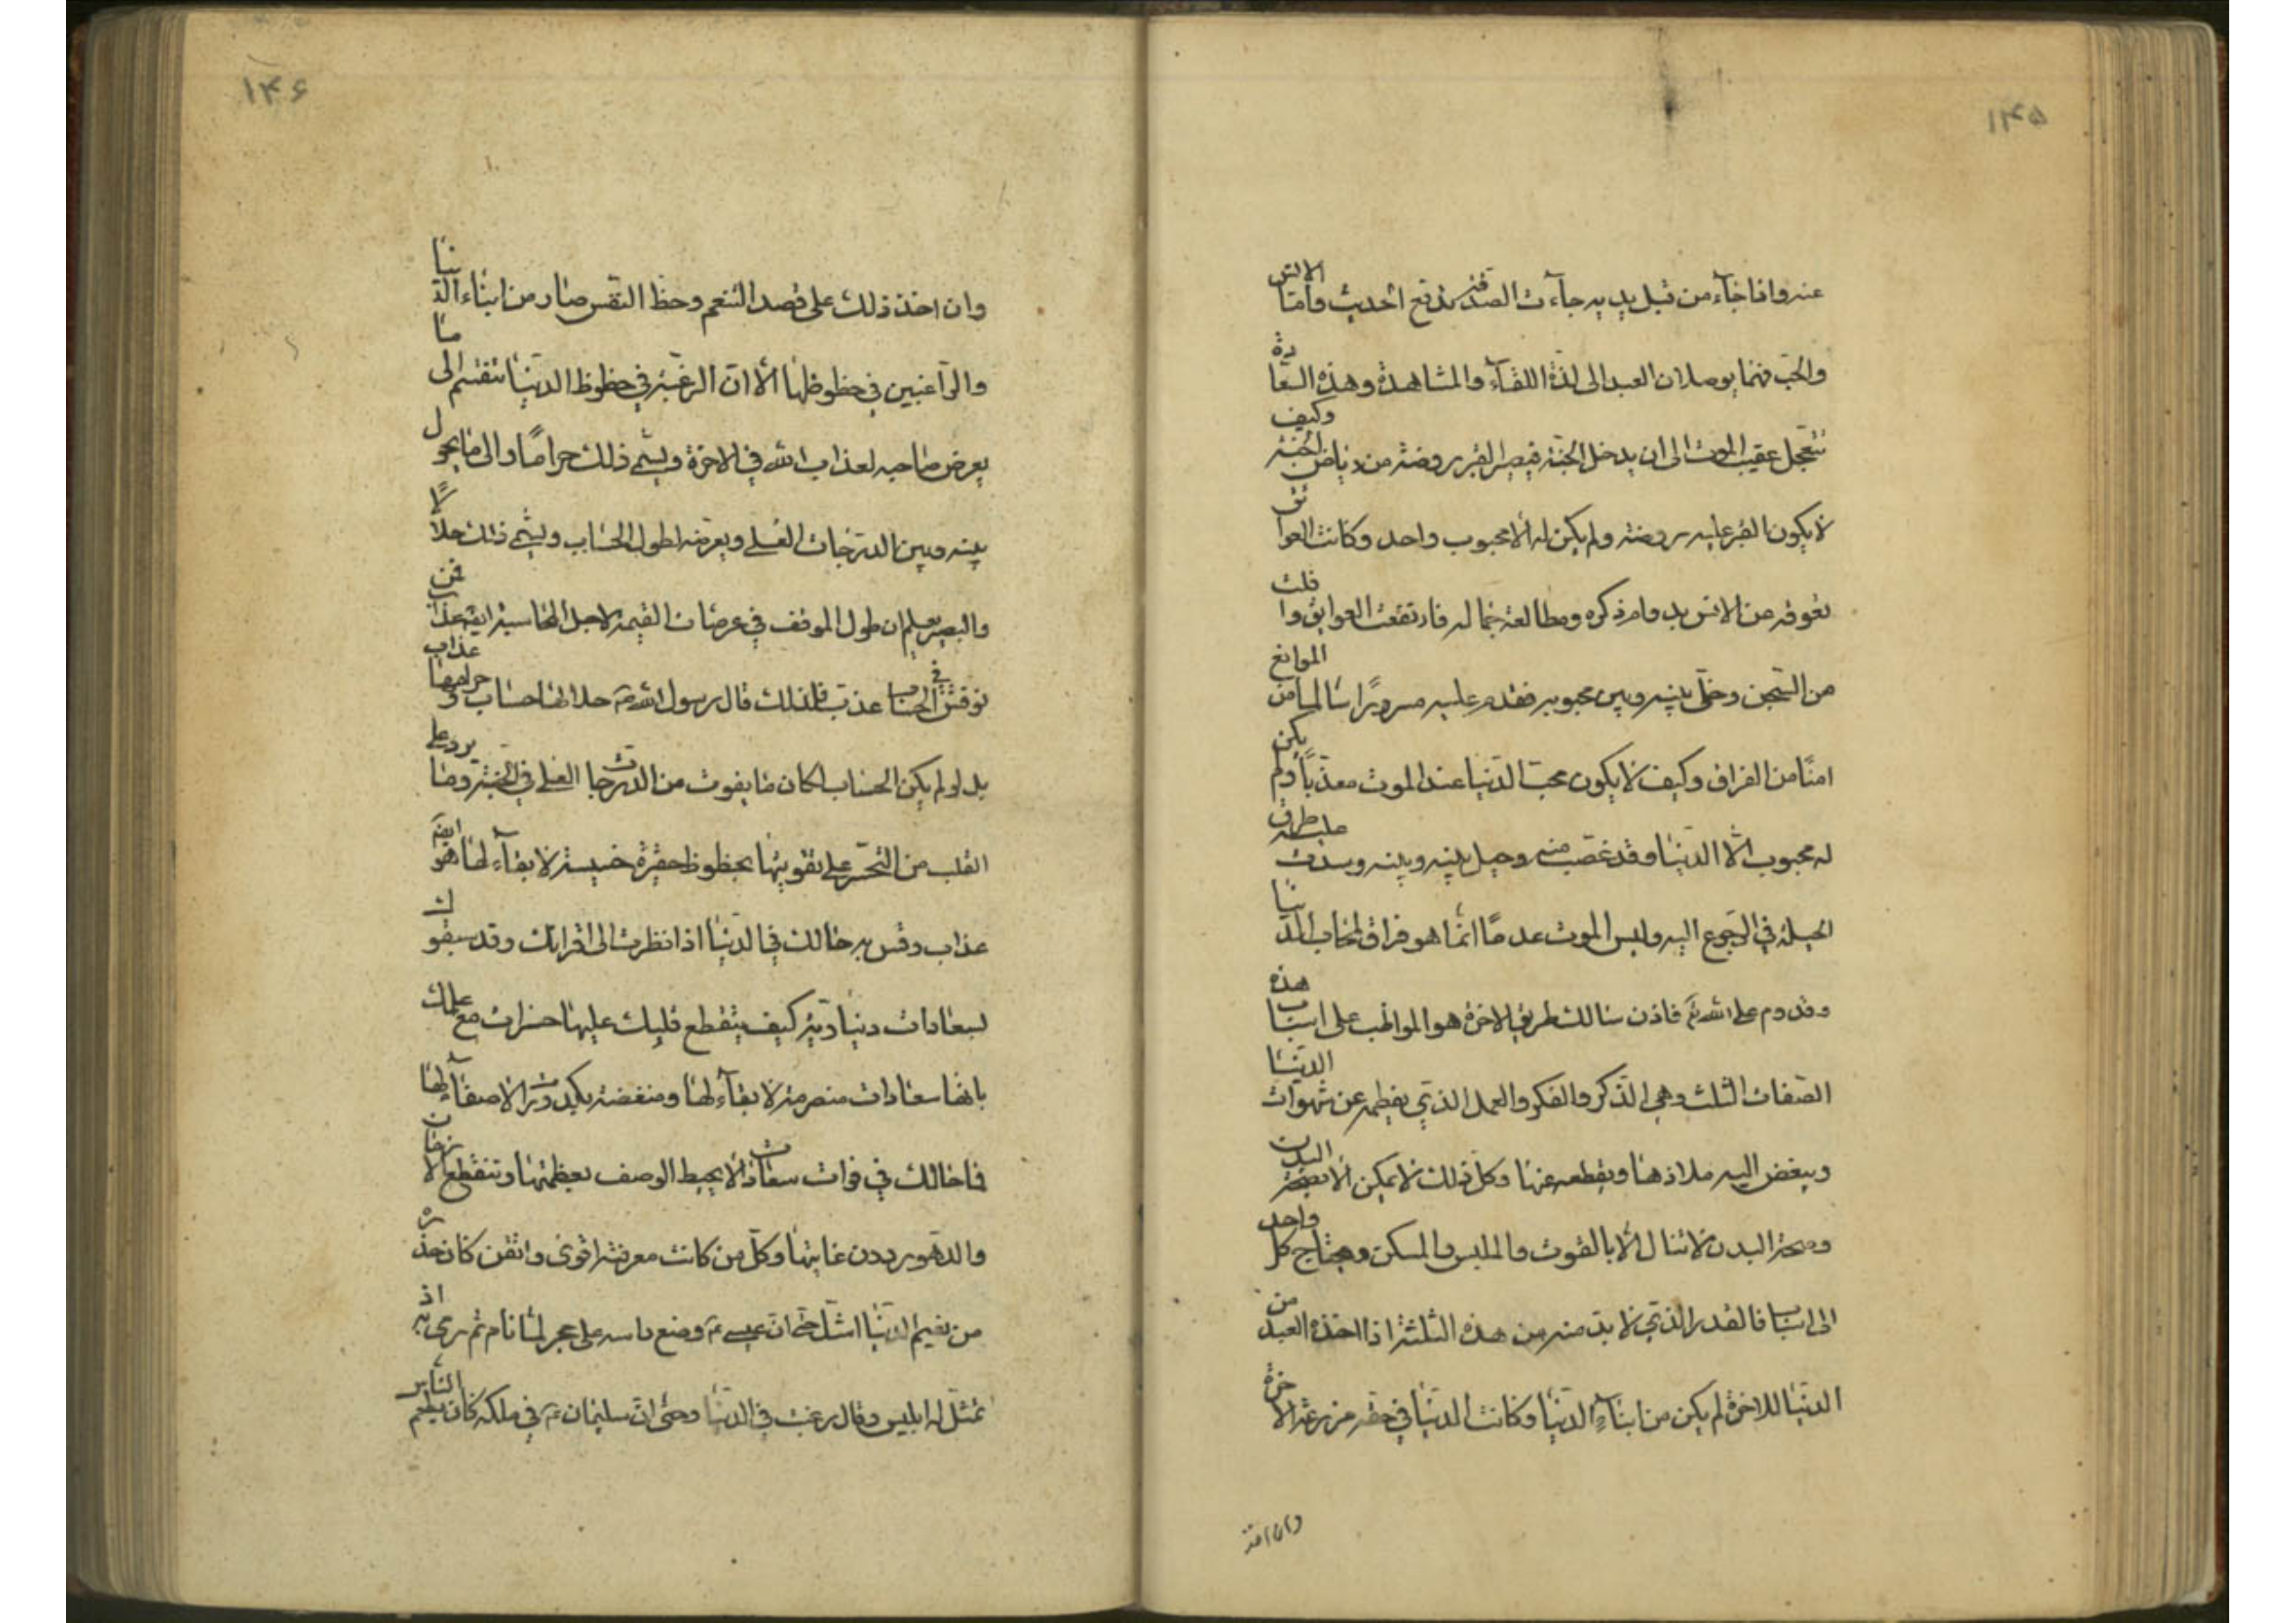 ١٤٥
عنه واذا جاء من قبل يديه جاءت الصدقة تدفع الحديث واما الانس
والحب فهما يوصلان العبد الى لذة اللقاء والمشاهدة وهذه السعادة
تتعجل عقيب الموت الى ان يدخل الجنة فيصير القبر روضة من رياض الجنة وكيف
لا يكون القبر عليه روضة ولم يكن له الا محبوب واحد وكانت العوائق
تعوقه عن الانس بدوام ذكره ومطالعة جماله فارتفعت العوايق وافلت
من السجن وخلى بينه وبين محبوبه فقدم عليه مسرورًا سالما من الموانع
امنًا من الفراق وكيف لا يكون محب الدنيا عند الموت معذبًا ولم يكن
له محبوب الا الدنيا وقد غصب منه وحيل بينه وبينه وسدت عليه طرق
الحيلة في الرجوع اليه وليس الموت عدمًا انما هو فراق لمحاب الدنيا
وقدوم على الله تع فاذن سالك طريق الاخرة هو المواظب على اسباب هذه
الصفات الثلث وهي الذكر والفكر والعمل الذي يفطمه عن شهوات الدنيا
ويبغض اليه ملاذها ويقطعه عنها وكل ذلك لا يمكن الا بصحة البدن
وصحة البدن لا تنال الا بالقوت والملبس والمسكن ويحتاج كل واحد
الى اسباب فالقدر الذي لا بد منه من هذه الثلثة اذا اخذه العبد من
الدنيا للاخرة لم يكن من ابناء الدنيا وكانت الدنيا في حقه مزرعة الاخرة
وان اخذ
١٤٦
وان اخذ ذلك على قصد التنعم وحظ النفس صار من ابناء الدنيا
والراغبين في حظوظها الا ان الرغبة في حظوظ الدنيا تنقسم الى ما
يعرض صاحبه لعذاب الله في الاخرة ويسمى ذلك حرامًا والى ما يحول
بينه وبين الدرجات العلى ويعرضه لطول الحساب ويسمى ذلك حلالًا
والبصير يعلم ان طول الموقف في عرصات القيمة لاجل المحاسبة ايضا عذاب فمن
نوقش في الحساب عذب فلذلك قال رسول الله ص حلالها حساب وحرامها عذاب
بل لو لم يكن الحساب لكان ما يفوت من الدرجات العلى في الجنة وما يرد على
القلب من التحسر على تفويتها بحظوظ حقيرة خسيسة لا بقاء لها هو ايضا
عذاب وقس به حالك في الدنيا اذا نظرت الى اقرانك وقد سبقوك
لسعادات دنياوية كيف يتقطع قلبك عليها حسرات مع علمك
بانها سعادات منصرمة لا بقاء لها ومنغصة بكدورات لا صفاء لها
فما حالك في فوات سعادات لا يحيط الوصف بعظمتها وتنقطع الازمان
والدهور دون غايتها وكل من كانت معرفته اقوى واتقن كان حذره
من نعيم الدنيا اشد حتى ان عيسى ع وضع راسه على حجر لما نام ثم رمى به اذ
تمثل له ابليس وقال رغبت في الدنيا وحتى ان سليمان ع في ملكه كان يطعم الناس